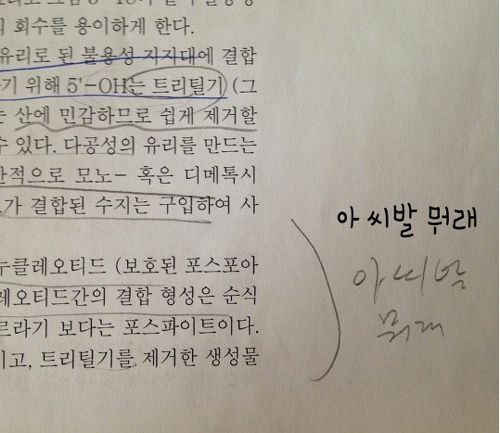 의 회수를 용이하게 한다.
유리로 된 불용성 지지대에 결합
하기 위해 5'-OH는 트리틸기 (그
는 산에 민감하므로 쉽게 제거할
수 있다. 다공성의 유리를 만드는
반적으로 모노- 혹은 디메톡시
가 결합된 수지는 구입하여 사
누클레오티드 (보호된 포스포아
레오티드간의 결합 형성은 순식
르라기 보다는 포스파이트이다.
이고, 트리틸기를 제거한 생성물
아 씨발 뭐래
아 씨발
뭐래